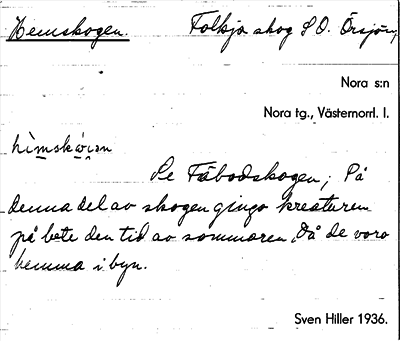 Hemskogen. Folkja skog S.O. Örsjön,
Nora s:n
Nora tg., Västernorrl. l.
hèmskó̱gɜn
Se Fäbodskogen; På
denna del av skogen gingo kreaturen
på bete den tid av sommaren, då de voro
hemma i byn.
Sven Hiller 1936.